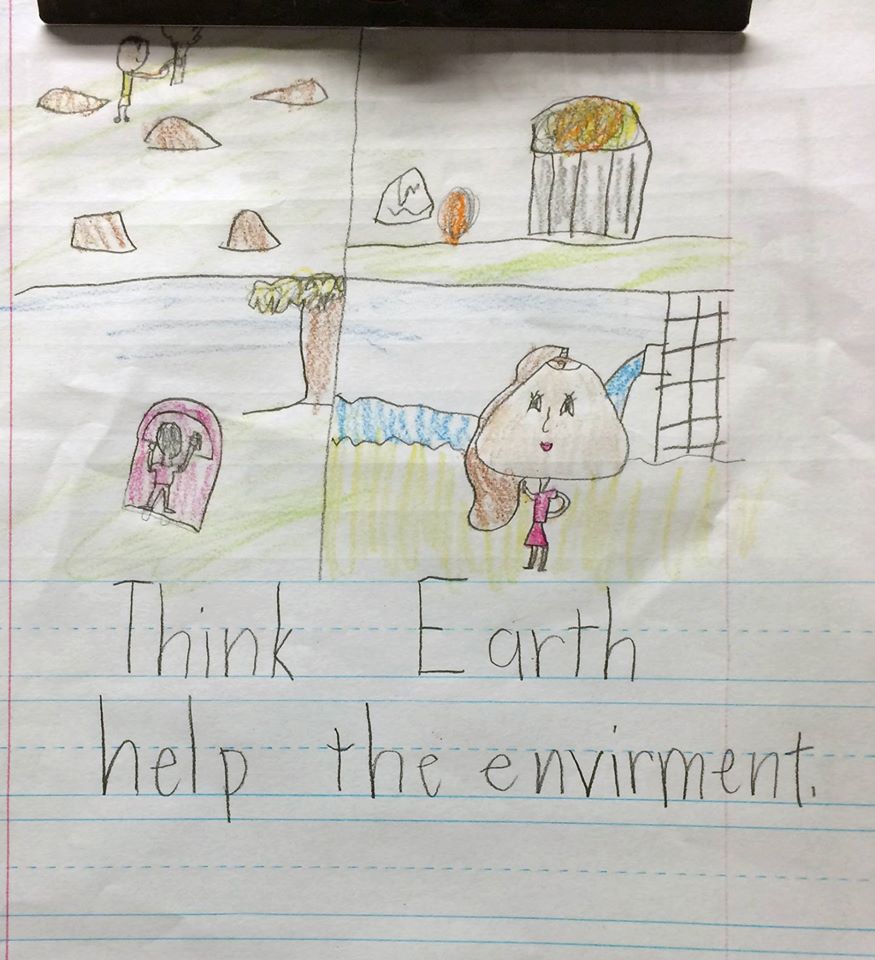 Think Earth
help the envirment.